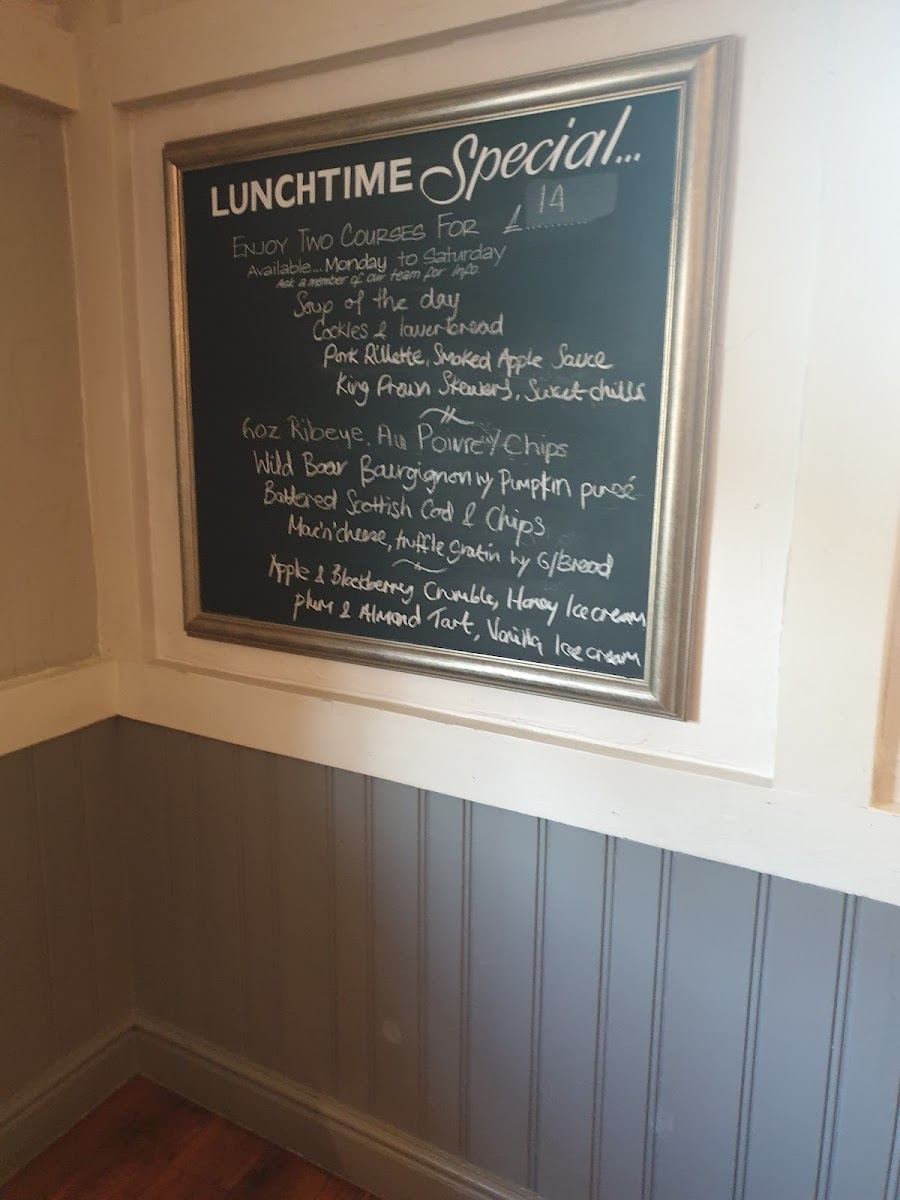 LUNCHTIME Special...
ENJOY TWO COURSES FOR £ 14
Available... Monday to Saturday
Ask a member of our team for info
Soup of the day
Cockles & laverbread
Pork Rillette, Smoked Apple Sauce
King Prawn Skewers, Sweet chilli
6oz Ribeye, Au Poivre w/ Chips
Wild Boar Bourgignon w/ Pumpkin purée
Battered Scottish Cod & Chips
Mac'n'cheese, truffle gratin w/ G/Bread
Apple & Blackberry Crumble, Honey Ice cream
Plum & Almond Tart, Vanilla Ice cream